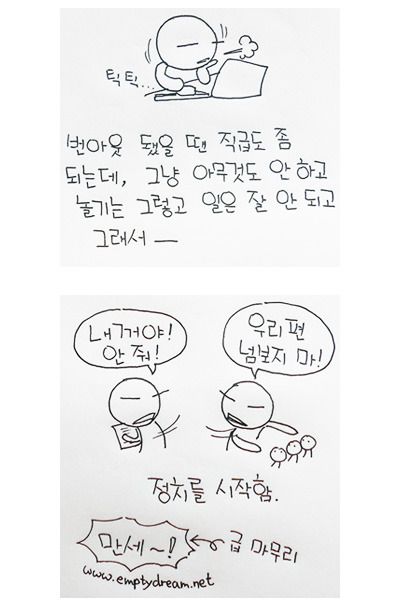 틱틱...
번아웃 됐을 땐 직급도 좀
되는데, 그냥 아무것도 안 하고
놀기는 그렇고 일은 잘 안 되고
그래서 —
내꺼야!
안 줘!
우리 편
넘보지 마!
정치를 시작함.
만세~!
급 마무리
www.emptydream.net